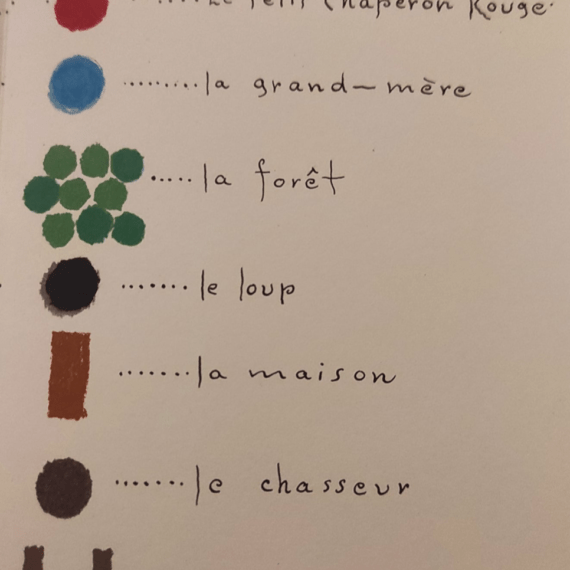 Le Petit Chaperon Rouge
.........la grand-mère
.....la forêt
.......le loup
.......la maison
.......le chasseur